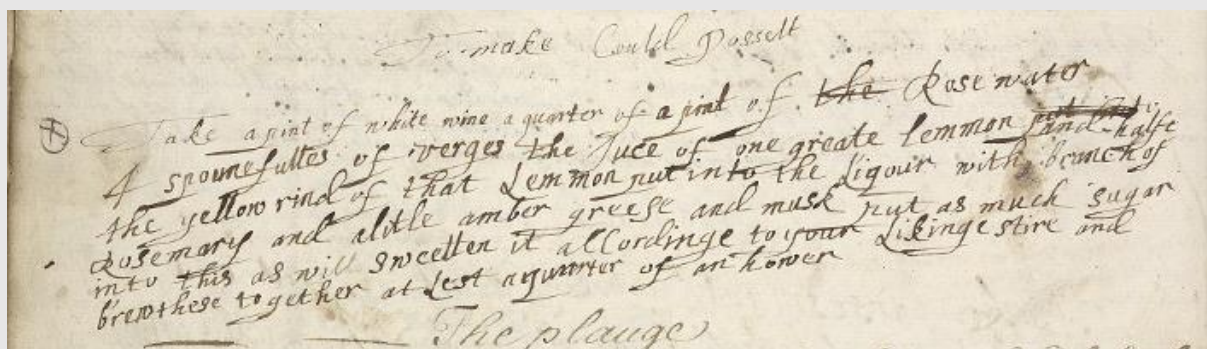 To make Could Possett
Take a pint of white wine a quarter of a pint of the Rose water
4 spounefulles of verges the Juce of one greate lemmon put into
the yellow rind of that Lemmon put into the Liqour with and halfe
Rosemary and alitle amber greese and musk put as much sugar branch of
into this as will sweetten it accordinge to your Likinge stire and
brew these together at Lest a quarter of an hower
The plauge